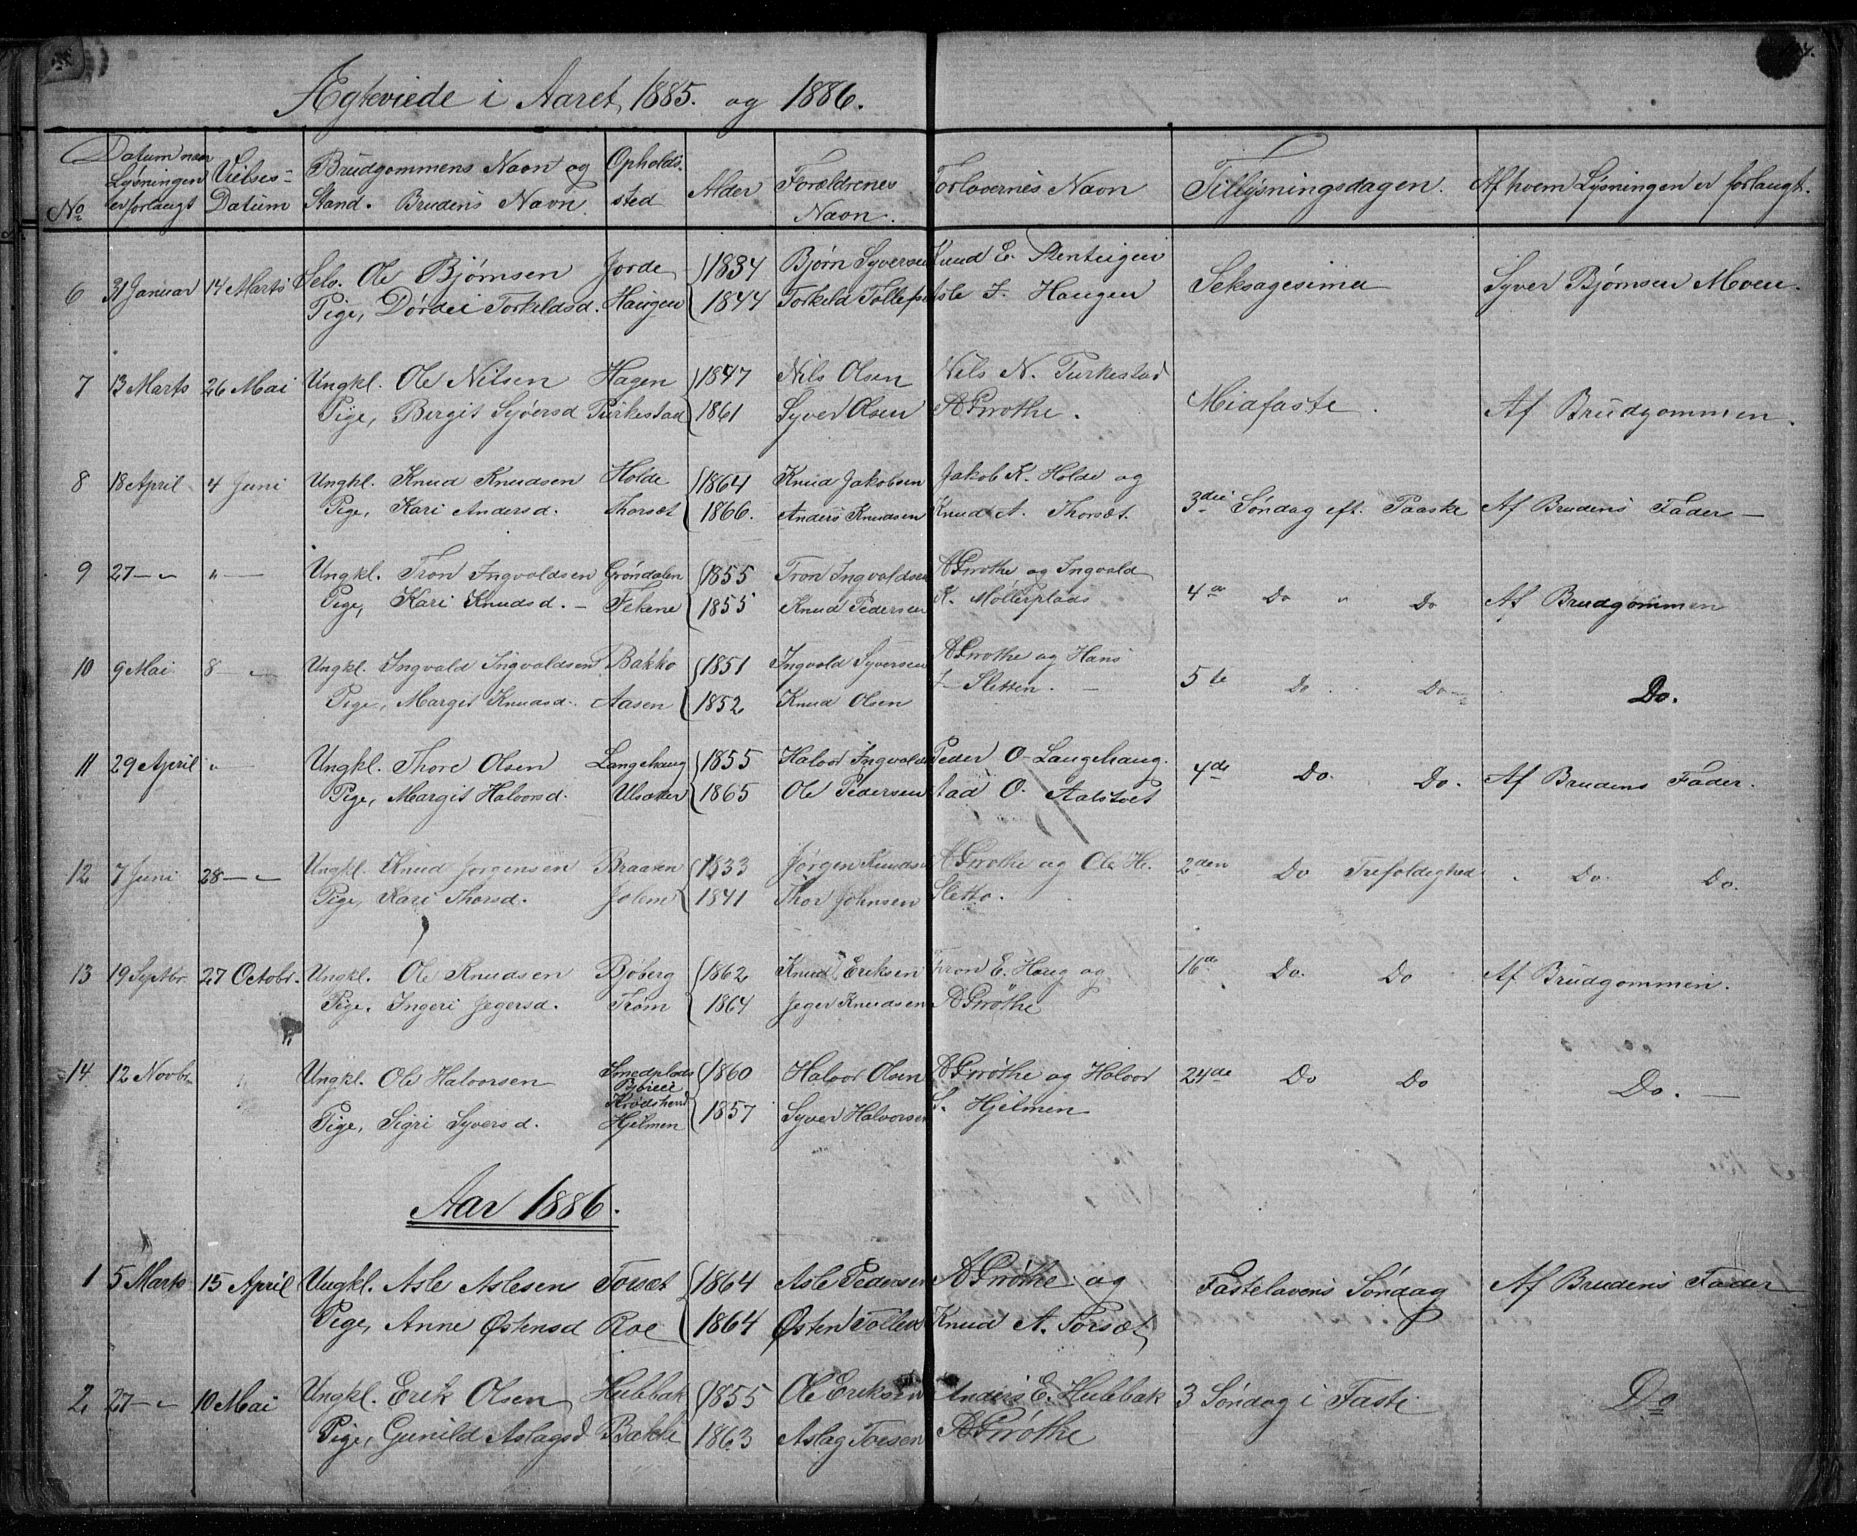 Ægteviede i Aaret 1885. og 1886.
No Datum naar Lysningen er forlangt Vielses- Datum Brudgommens Navn og Stand. Brudens Navn. Opholds- sted Alder Forældrenes Navn. Forlovernes Navn Tillysningsdagen. Af hvem Lysningen er forlangt.
6 31 Januar 14 Marts Selv. Ole Bjørnsen Jorde 1834 Bjørn Syversen Knud E. Stenteigen Seksagesima Syver Bjørnsen Moen.
Pige, Dørdei Torkildsd. Haugen 1844 Torkild Tollefs Asle T. Haugen
7 13 Marts 26 Mai Ungkl. Ole Nilsen Hagen 1847 Nils Olsen Nils N. Turkestad Midfaste. Af Brudgommen.
Pige, Birgit Syversd Turkestad 1861 Syver Olsen AGrøthe.
8 18 April 4 Juni Ungkl. Knud Knudsen Holde 1864 Knud Jakobsen Jakob K. Holde og 3die Søndag eft. Paaske Af Brudens Fader —
Pige, Kari Andersd. Thorsæt 1866. Anders Knudsen Knud A. Thorsæt.
9 27 — " " — Ungkl. Tron Ingvaldsen Grøndalen 1855 Tron Ingvaldsen AGrøthe og Ingvald 4de Do " Do Af Brudgommen
Pige, Kari Knudsd. — Fekene 1855 Knud Pedersen K. Møllerplads
10 9 Mai 8 — " Ungkl. Ingvald Ingvaldsen Bakko 1851 Ingvald Syversen AGrøthe og Hans 5te Do Do Do.
Pige, Margit Knudsd. Aasen 1852 Knud Olsen Sletten. —
11 29 April " — Ungkl. Thore Olsen Langehaug 1855 Halvor Ingvalds Peder O. Langehaug. 4de Do. Do. Af Brudens Fader.
Pige, Margit Halvorsd. Ulsaker 1865 Ole Pedersen O. Aalstvet
12 7 Juni 28 — " Ungkl. Knud Jørgensen Braaten 1833 Jørgen Knudsen AGrøthe og Ole H. 2den Do Trefoldighed " Do. Do.
Pige, Kari Thorsd. Jolem 1841 Thor Johnsen Sletto.
13 19 Septbr 27 Octobr. Ungkl. Ole Knudsen Bjøberg 1862 Knud Eriksen Tron E. Haug og 16de Do. Do Af Brudgommen.
Pige. Ingeri Jegersd. Trøm 1864 Jeger Knudsen AGrøthe
14 12 Novbr " Ungkl. Ole Halvorsen Smedplads Krødshered 1860 Halvor Olsen AGrøthe og Halvor 24de Do Do Do. —
Pige, Sigri Syversd. Hjelmen 1857 Syver Halvorsen S. Hjelmen
Aar 1886.
1 5 Marts 15 April Ungkl. Asle Aslesen Torsæt 1864 Asle Pedersen AGrøthe og Fastelavens Søndag Af Brudens Fader
Pige, Anne Østensd Roe 1864 Østen Tollevs Knud A. Torsæt
2 27 — " 10 Mai Ungkl. Erik Olsen Hulbak 1855 Ole Eriksen Anders E. Hulbak 3 Søndag i Faste Do
Pige, Gunild Aslagsd Bakke 1863 Aslag Toesen AGrøthe